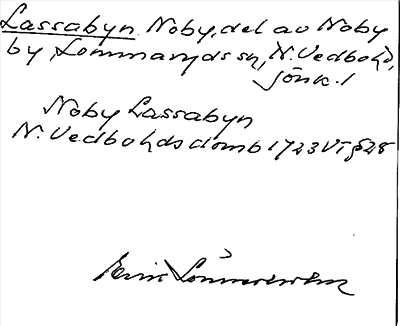 Lassabyn. Noby, del av Noby
by, Lommaryds sn, N. Vedbo hd,
Jönk. l
Noby Lassabyn
N. Vedbo hds domb 1723 VT § 28